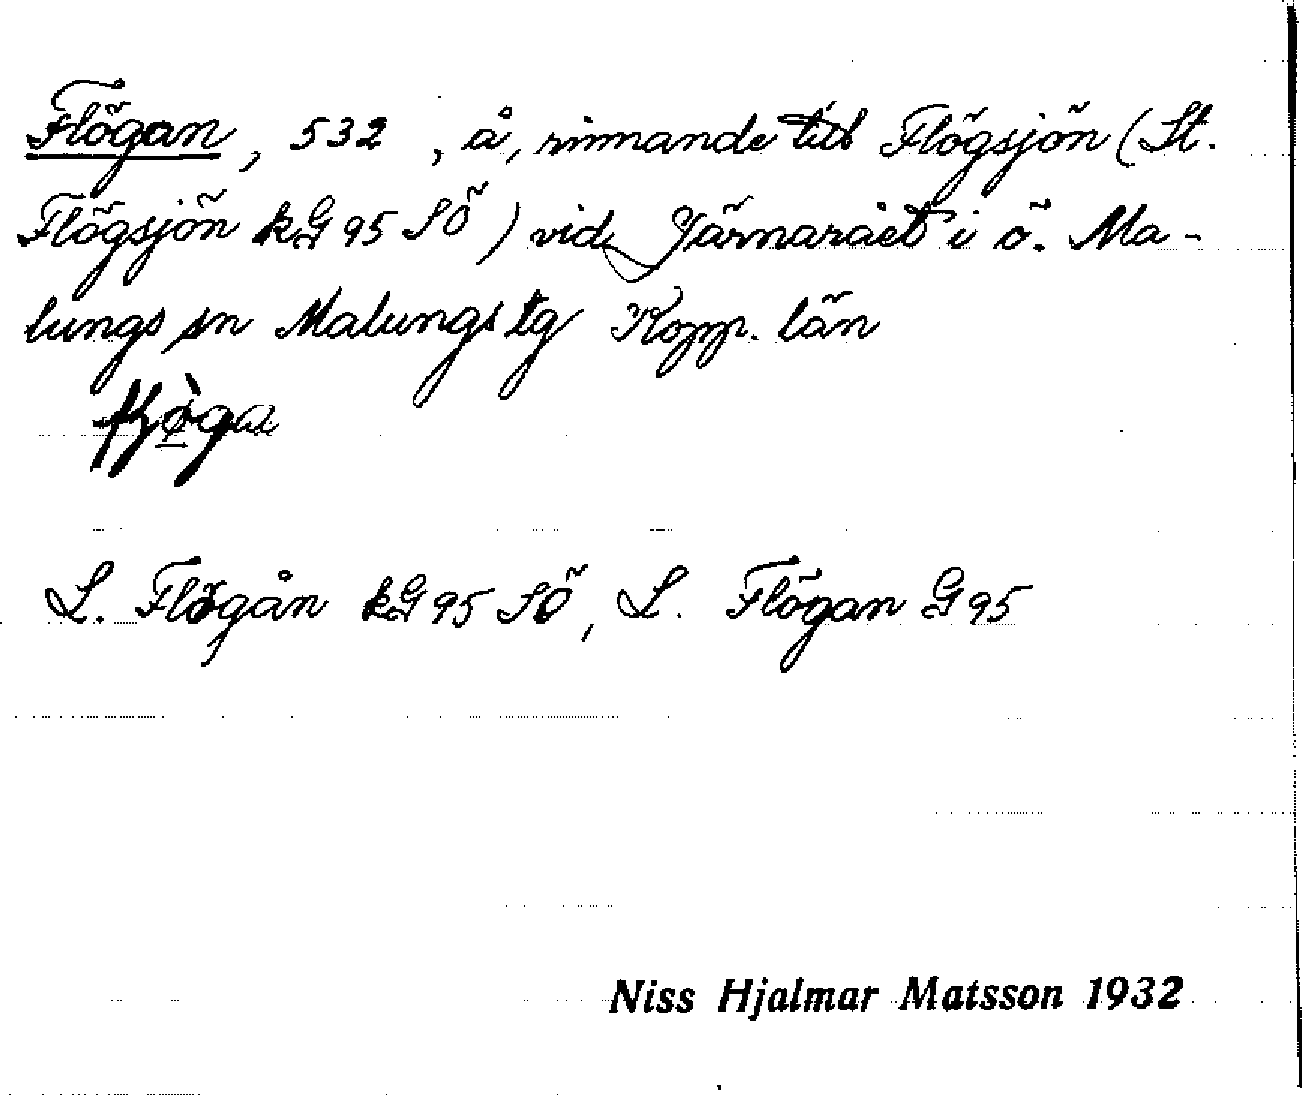 Flögan, 532 , å, rinnande till Flögsjön (St.
Flögsjön kG 95 SÖ) vid Järnarået i ö. Ma-
lungs sn Malungs tg Kopp. län
L. Flögån kG 95 SÖ, L. Flögan G 95
Niss Hjalmar Matsson 1932